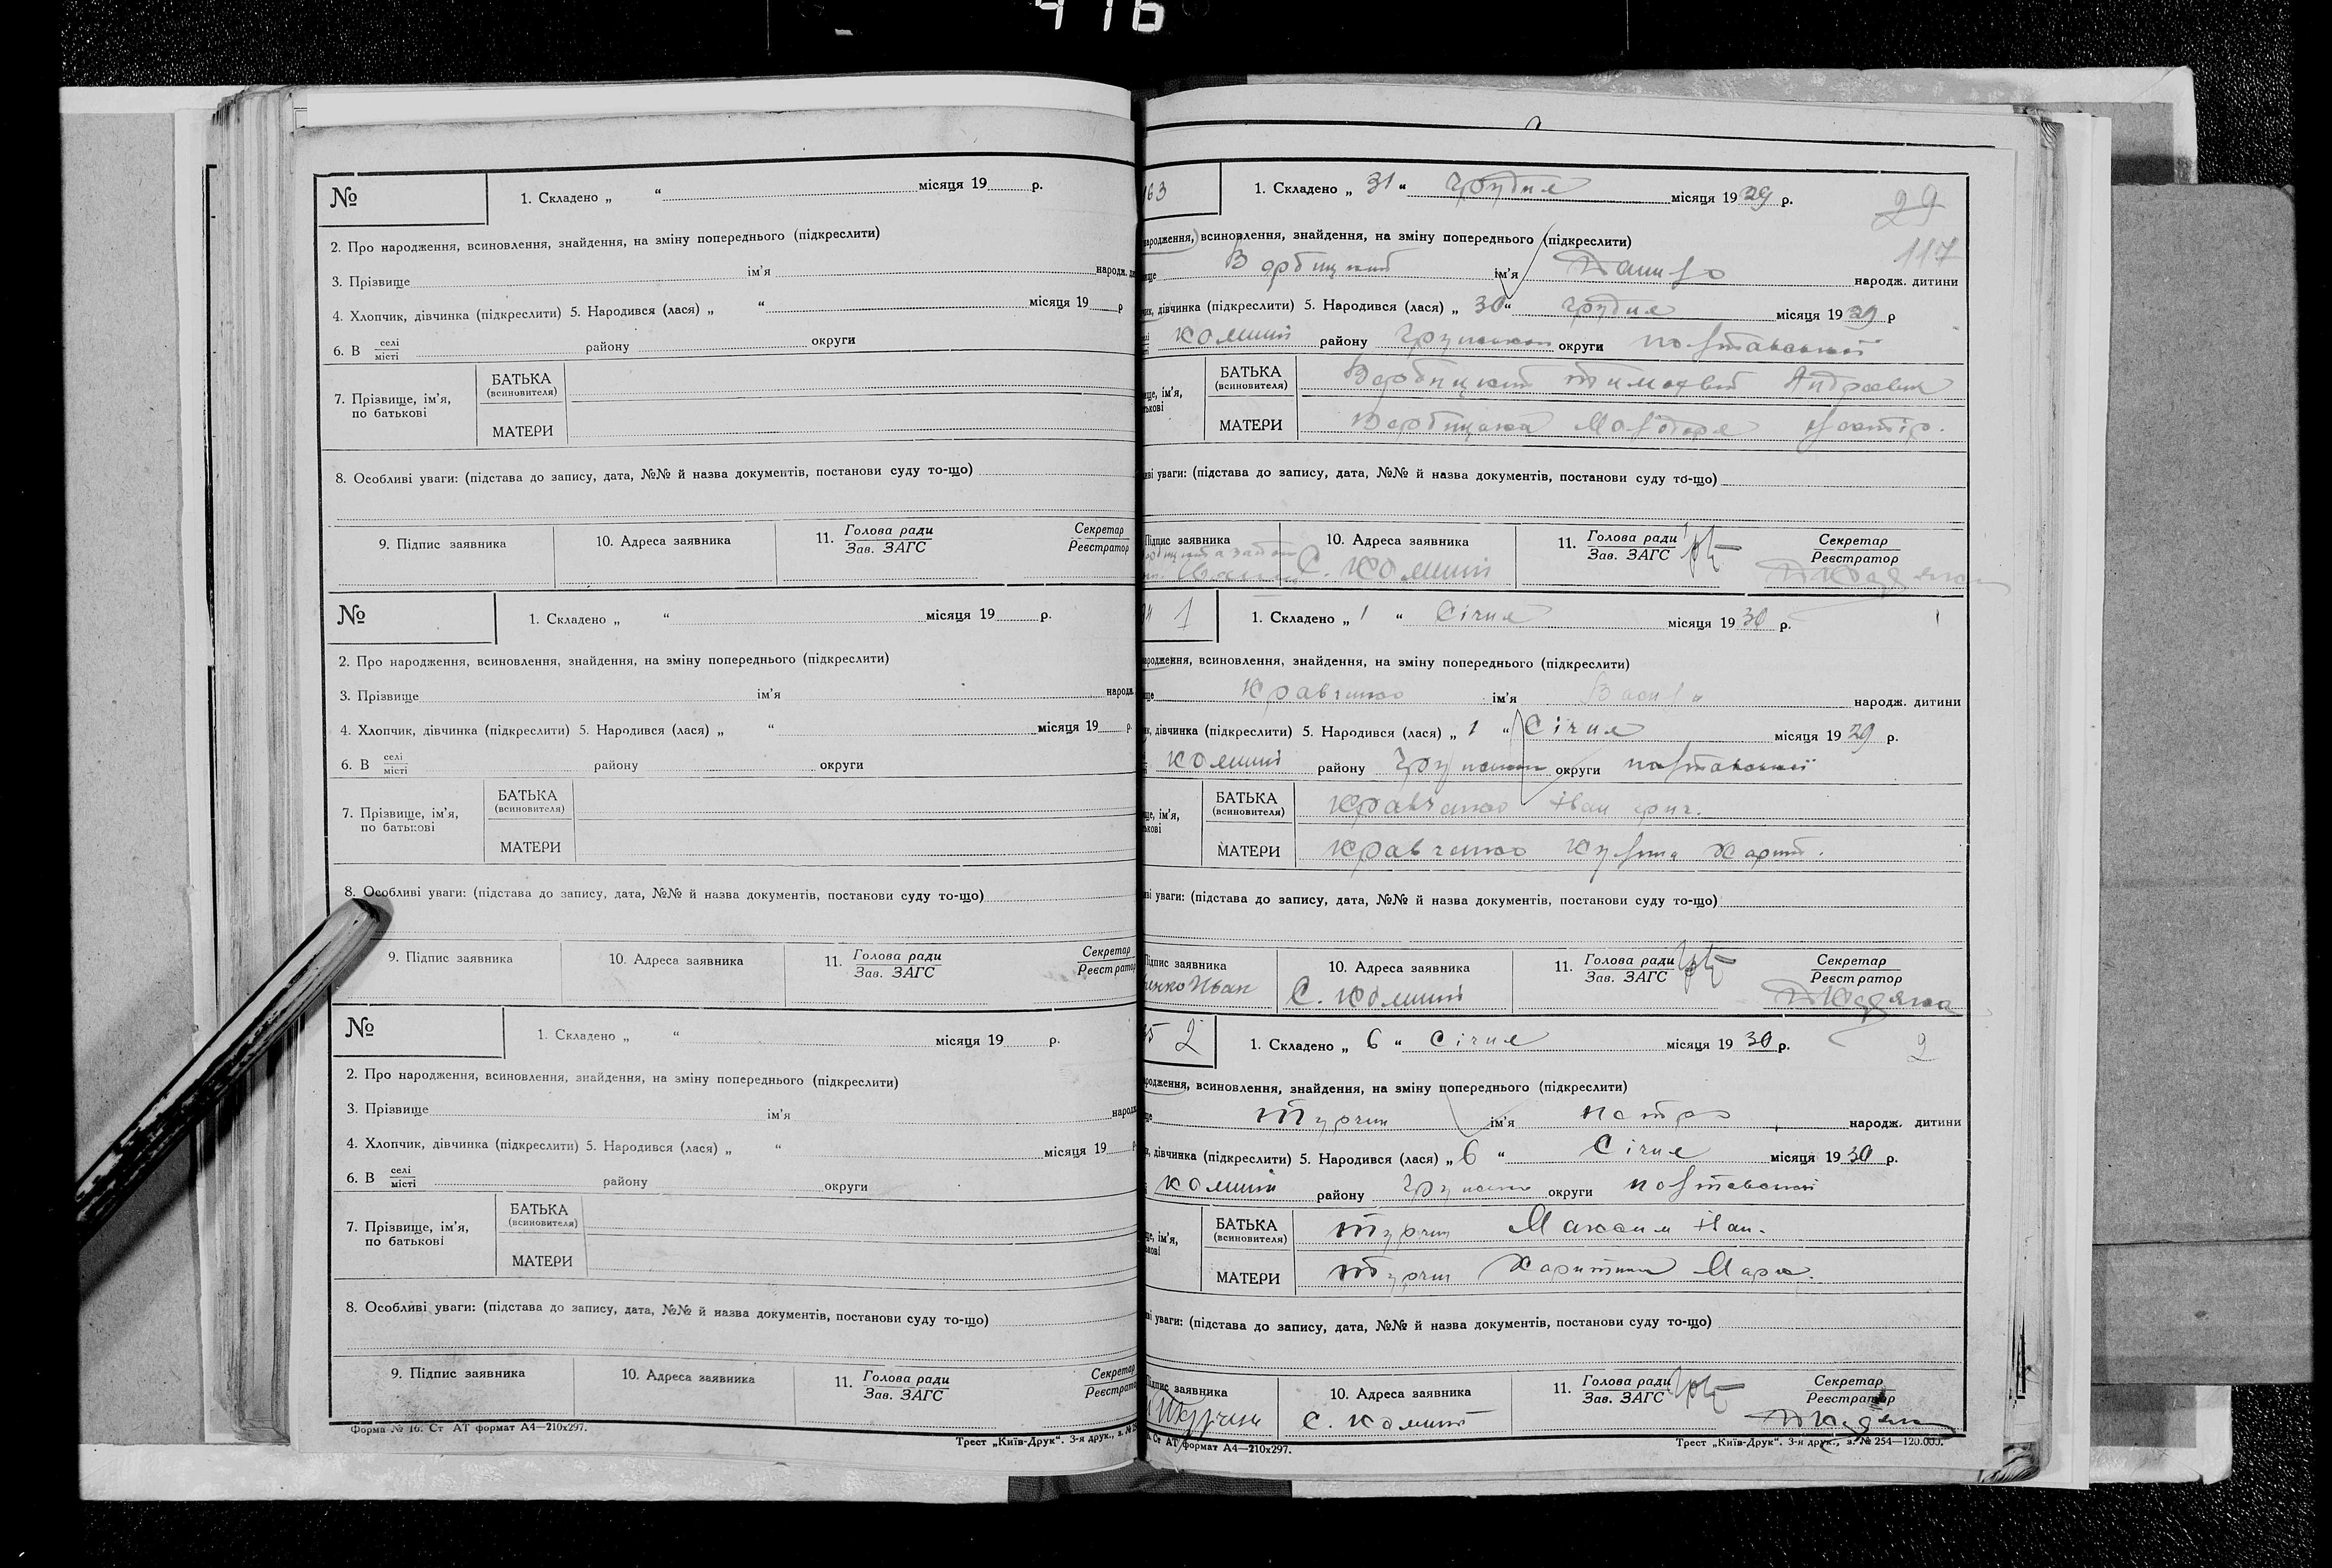 416
№
1. Складено „ “ місяця 19 р.
2. Про народження, всиновлення, знайдення, на зміну попереднього (підкреслити)
3. Прізвище ім’я народж.
4. Хлопчик, дівчинка (підкреслити) 5. Народився (лася) „ “ місяця 19 р
6. В селі місті району округи
7. Прізвище, ім’я, по батькові
БАТЬКА (всиновителя)
МАТЕРИ
8. Особливі уваги: (підстава до запису, дата, №№ й назва документів, постанови суду то-що)
9. Підпис заявника 10. Адреса заявника 11. Голова ради Зав. ЗАГС Секретар Реєстратор
№
1. Складено „ “ місяця 19 р.
2. Про народження, всиновлення, знайдення, на зміну попереднього (підкреслити)
3. Прізвище ім’я народж
4. Хлопчик, дівчинка (підкреслити) 5. Народився (лася) „ “ місяця 19 р.
6. В селі місті району округи
7. Прізвище, ім’я, по батькові
БАТЬКА (всиновителя)
МАТЕРИ
8. Особливі уваги: (підстава до запису, дата, №№ й назва документів, постанови суду то-що)
9. Підпис заявника 10. Адреса заявника 11. Голова ради Зав. ЗАГС Секретар Реєстратор
№
1. Складено „ “ місяця 19 р.
2. Про народження, всиновлення, знайдення, на зміну попереднього (підкреслити)
3. Прізвище ім’я народж
4. Хлопчик, дівчинка (підкреслити) 5. Народився (лася) „ “ місяця 19
6. В селі місті району округи
7. Прізвище, ім’я, по батькові
БАТЬКА (всиновителя)
МАТЕРИ
8. Особливі уваги: (підстава до запису, дата, №№ й назва документів, постанови суду то-що)
9. Підпис заявника 10. Адреса заявника 11. Голова ради Зав. ЗАГС Секретар Реєстратор
Форма № 16. Ст АТ формат А4—210х297. Трест „Київ-Друк“. 3-я друк., з. №
163 1. Складено „ 31 “ Грудня місяця 1929 р. 29
117
ародження, всиновлення, знайдення, на зміну попереднього (підкреслити)
ище Вербицкий ім’я Данило народж. дитини
дівчинка (підкреслити) 5. Народився (лася) „ 30 “ грудня місяця 1929 р
Комиші району Грунськ округи полтавської
ище, ім’я, БАТЬКА (всиновителя) Вербицкий Тимофей Андреевич
МАТЕРИ Вербицька
ві уваги: (підстава до запису, дата, №№ й назва документів, постанови суду то-що)
Підпис заявника 10. Адреса заявника 11. Голова ради Зав. ЗАГС Секретар Реєстратор
С. Комиші
1 1. Складено „ 1 “ Січня місяця 1930 р. 1
ародження, всиновлення, знайдення, на зміну попереднього (підкреслити)
ще Кравченко ім’я Васил народж. дитини
дівчинка (підкреслити) 5. Народився (лася) „ 1 “ Січня місяця 1929 р.
Комиші району Грунськ округи полтавської
ще, ім’я, БАТЬКА (всиновителя) Кравченко Іван григ.
МАТЕРИ Кравченко Харит.
ві уваги: (підстава до запису, дата, №№ й назва документів, постанови суду то-що)
Підпис заявника 10. Адреса заявника 11. Голова ради Зав. ЗАГС Секретар Реєстратор
енко Иван С. Комиші
2 1. Складено „ 6 “ Січня місяця 1930 р. 2
родження, всиновлення, знайдення, на зміну попереднього (підкреслити)
Турчин ім’я петро народж. дитини
дівчинка (підкреслити) 5. Народився (лася) „ 6 “ Січня місяця 1930 р.
Комиші району Грунськ округи полтавської
ім’я, БАТЬКА (всиновителя) Турчин Максим Іван.
МАТЕРИ Турчин Харитина Марк.
ві уваги: (підстава до запису, дата, №№ й назва документів, постанови суду то-що)
Підпис заявника 10. Адреса заявника 11. Голова ради Зав. ЗАГС Секретар Реєстратор
Турчин С. Комиші
Ст АТ формат А4—210х297. Трест „Київ-Друк“. 3-я друк., з. № 254—120.000.